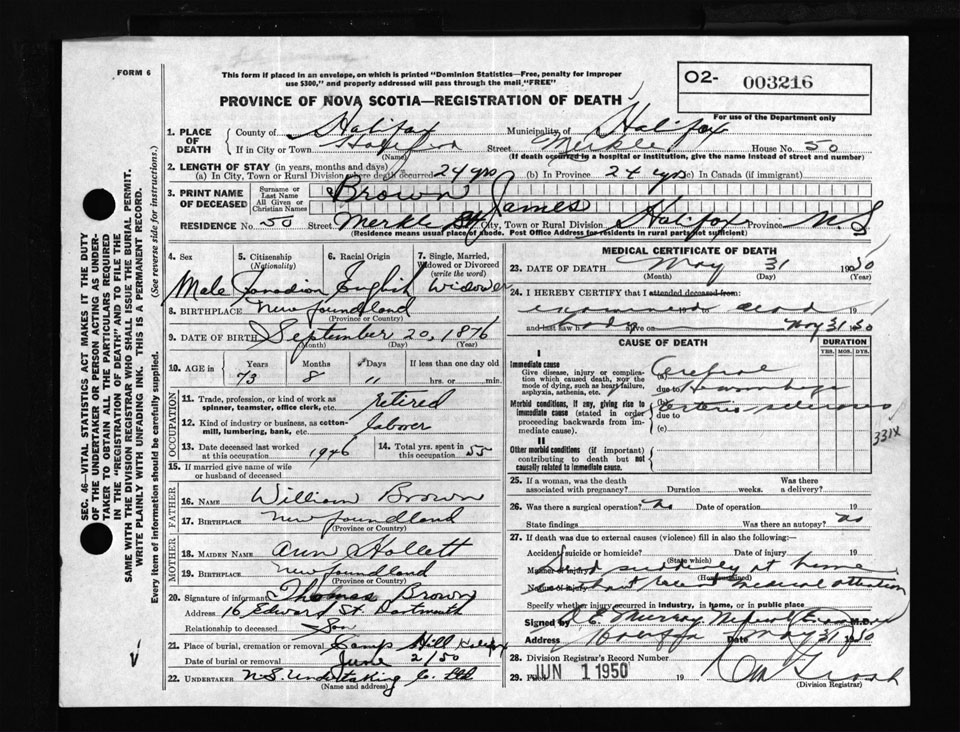 FORM 6
This form if placed in an envelope, on which is printed "Dominion Statistics—Free, penalty for improper
use $300," and properly addressed will pass through the mail "FREE"
O2- 003216
For use of the Department only
PROVINCE OF NOVA SCOTIA—REGISTRATION OF DEATH
1. PLACE OF DEATH
County of Halifax Municipality of Halifax
If in City or Town Halifax Street Merkle House No. 50
(Name) (If death occurred in a hospital or institution, give the name instead of street and number)
2. LENGTH OF STAY (in years, months and days)
(a) In City, Town or Rural Division where death occurred 24 yrs (b) In Province 24 yrs (c) In Canada (if immigrant)
3. PRINT NAME OF DECEASED
Surname or Last Name Brown
All Given or Christian Names James
RESIDENCE No. 50 Street Merkle St City, Town or Rural Division Halifax Province N.S
(Residence means usual place of abode. Post Office Address for residents in rural parts not sufficient)
4. Sex
5. Citizenship (Nationality)
6. Racial Origin
7. Single, Married, Widowed or Divorced (write the word)
Male Canadian English Widower
8. BIRTHPLACE Newfoundland
(Province or Country)
9. DATE OF BIRTH September 20, 1876
(Month) (Day) (Year)
10. AGE in Years Months Days If less than one day old
73 8 11 hrs. or min.
OCCUPATION
11. Trade, profession, or kind of work as
spinner, teamster, office clerk, etc. retired
12. Kind of industry or business, as cotton-
mill, lumbering, bank, etc. laborer
13. Date deceased last worked
at this occupation 1946
14. Total yrs. spent in
this occupation 55
15. If married give name of wife
or husband of deceased
FATHER
16. NAME William Brown
17. BIRTHPLACE Newfoundland
(Province or Country)
MOTHER
18. MAIDEN NAME Ann Hollett
19. BIRTHPLACE Newfoundland
(Province or Country)
20. Signature of informant Thomas Brown
Address 16 Edward St. Dartmouth
Relationship to deceased Son
21. Place of burial, cremation or removal Camp Hill Halifax
Date of burial or removal June 2/50
22. UNDERTAKER N.S. Undertaking Co. Ltd
(Name and address)
MEDICAL CERTIFICATE OF DEATH
23. DATE OF DEATH May 31 1950
(Month) (Day) (Year)
24. I HEREBY CERTIFY that I attended deceased from:
dead
and last saw alive on May 31 50
CAUSE OF DEATH
DURATION
YRS. MOS. DYS.
I
Immediate cause
Give disease, injury or complica-
tion which caused death, not the
mode of dying, such as heart failure,
asphyxia, asthenia, etc.
(a) Cerebral
due to Hemorrhage
Morbid conditions, if any, giving rise to
immediate cause (stated in order
proceeding backwards from im-
mediate cause).
(b) Arterio sclerosis
due to
(c)
331X
II
Other morbid conditions (if important)
contributing to death but not
causally related to immediate cause.
25. If a woman, was the death
associated with pregnancy? Duration weeks. Was there
a delivery?
26. Was there a surgical operation? No Date of operation 19
State findings Was there an autopsy? No
27. If death was due to external causes (violence) fill in also the following:—
Accident, suicide or homicide? Date of injury 19
(State which)
Manner of injury Died suddenly at home
(How sustained)
Nature of injury without medical attention
Specify whether injury occurred in industry, in home, or in public place
Signed by Murray M.D.
Address Halifax Date May 31 1950
28. Division Registrar's Record Number
29. Filed JUN 1 1950 19
(Division Registrar)
SEC. 46—VITAL STATISTICS ACT MAKES IT THE DUTY
OF THE UNDERTAKER OR PERSON ACTING AS UNDER-
TAKER TO OBTAIN ALL THE PARTICULARS REQUIRED
IN THE "REGISTRATION OF DEATH" AND TO FILE THE
SAME WITH THE DIVISION REGISTRAR WHO SHALL ISSUE THE BURIAL PERMIT.
WRITE PLAINLY WITH UNFADING INK. THIS IS A PERMANENT RECORD.
Every item of information should be carefully supplied. (See reverse side for instructions.)